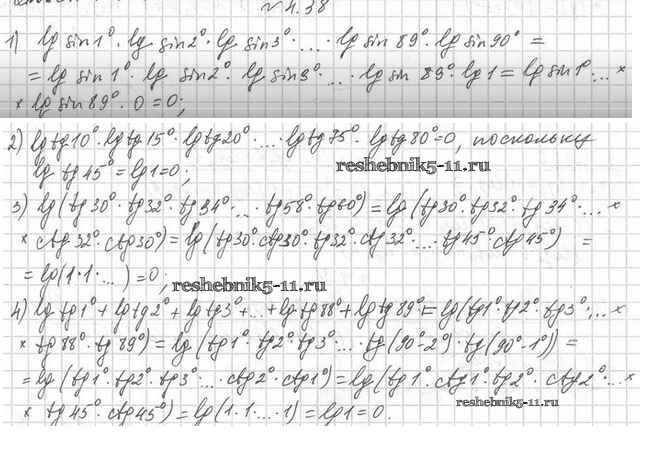 № 4.38
1) lg sin1° · lg sin2° · lg sin3° · ... · lg sin 89° · lg sin90° =
= lg sin1° · lg sin2° · lg sin3° · ... · lg sin 89° · lg 1 = lg sin1° · ... ×
× lg sin89° · 0 = 0;
2) lg tg10° · lg tg15° · lg tg20° · ... · lg tg75° · lg tg80° = 0, поскольку
lg tg45° = lg1 = 0;
reshebnik5-11.ru
3) lg(tg30° · tg32° · tg34° · ... · tg58° · tg60°) = lg(tg30° · tg32° · tg34° · ... ×
× ctg32° · ctg30°) = lg(tg30° · ctg30° · tg32° · ctg32° · ... · tg45° · ctg45°) =
= lg(1·1·...) = 0;
reshebnik5-11.ru
4) lg tg1° + lg tg2° + lg tg3° + ... + lg tg88° + lg tg89° = lg(tg1° · tg2° · tg3° · ... ×
× tg88° · tg89°) = lg(tg1° · tg2° · tg3° · ... · tg(90°-2°) · tg(90°-1°)) =
= lg(tg1° · tg2° · tg3° · ... · ctg2° · ctg1°) = lg(tg1° · ctg1° · tg2° · ctg2° · ... ×
× tg45° · ctg45°) = lg(1·1·...·1) = lg1 = 0.
reshebnik5-11.ru